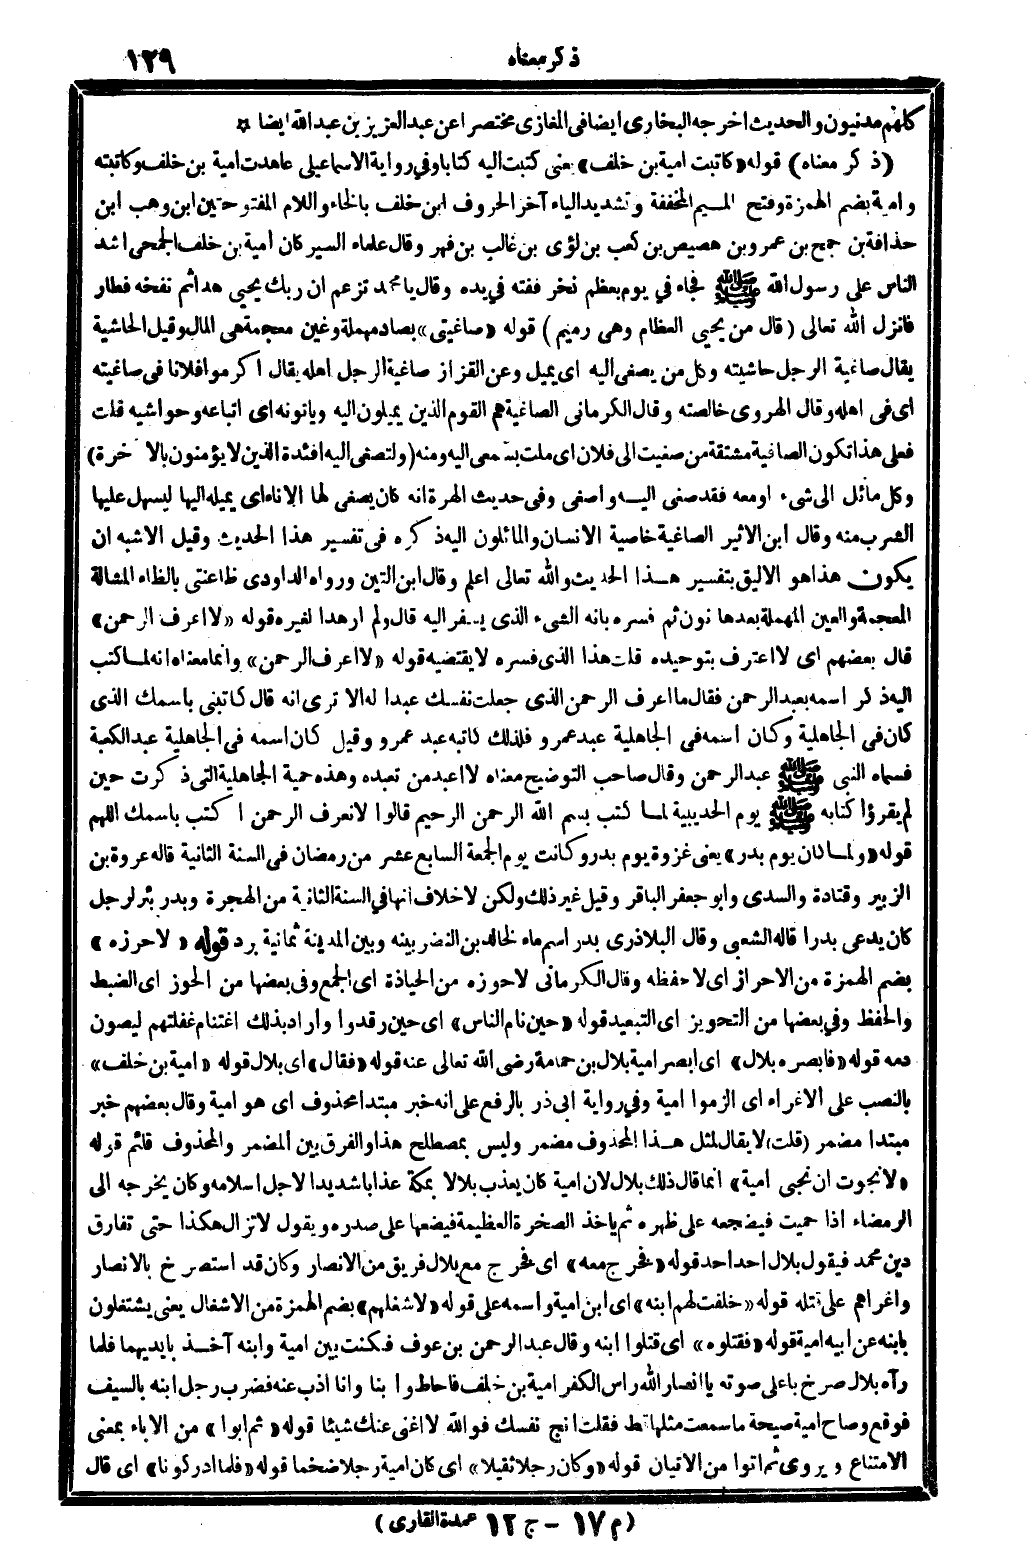 ذكر معناه ١٢٩
كلهم مدنيون والحديث اخرجه البخارى ايضا فى المغازى مختصرا عن عبد العزيز بن عبد الله ايضا ☆
(ذكر معناه) قوله «كاتبت امية بن خلف» يعنى كتبت اليه كتابا وفي رواية الاسماعيلى عاهدت امية بن خلف وكاتبته
وامية بضم الهمزة وفتح الميم المخففة وتشديد الياء آخر الحروف ابن خلف بالخاء واللام المفتوحتين ابن وهب ابن
حذافة بن جمح بن عمرو بن هصيص بن كعب بن لؤى بن غالب بن فهر وقال علماء السير كان أمية بن خلف الجمحى اشد
الناس على رسول الله ﷺ فجاء في يوم بعظم نخر ففته في يده وقال يا محمد تزعم ان ربك يحيى هذا ثم نفخه فطار
فانزل الله تعالى (قال من يحيى العظام وهى رميم) قوله «صاغيتى» بصاد مهملة وغين معجمة هى المال وقيل الحاشية
يقال صاغية الرجل حاشيته وكل من يصغى اليه اى يميل وعن القزاز صاغية الرجل اهله يقال اكرموا فلانا فى صاغيته
اى فى اهله وقال الهروى خالصته وقال الكرمانى الصاغية هم القوم الذين يميلون اليه ويأتونه اى اتباعه وحواشيه قلت
فعلى هذا تكون الصاغية مشتقة من صغيت الى فلان اى ملت بسمعى اليه ومنه (ولتصغى اليه افئدة الذين لا يؤمنون بالآخرة)
وكل مائل الى شىء او معه فقد صغى اليه واصغى وفى حديث الهرة انه كان يصغى لها الاناء اى يميله اليها ليسهل عليها
الشرب منه وقال ابن الاثير الصاغية خاصية الانسان والمائلون اليه ذكره فى تفسير هذا الحديث وقيل الاشبه ان
يكون هذا هو الاليق بتفسير هذا الحديث والله تعالى اعلم وقال ابن التين ورواه الداودى ظاعنتى بالظاء المشالة
المعجمة والعين المهملة بعدها نون ثم فسره بانه الشىء الذى يسفر اليه قال ولم ار هذا لغيره قوله «لا اعرف الرحمن»
قال بعضهم اى لا اعترف بتوحيده قلت هذا الذى فسره لا يقتضيه قوله «لا اعرف الرحمن» وانما معناه انه لما كتب
اليه ذكر اسمه بعبد الرحمن فقال ما اعرف الرحمن الذى جعلت نفسك عبدا له الا ترى انه قال كاتبنى باسمك الذى
كان فى الجاهلية وكان اسمه فى الجاهلية عبد عمرو فلذلك كاتبه عبد عمرو وقيل كان اسمه فى الجاهلية عبد الكعبة
فسماه النبى ﷺ عبد الرحمن وقال صاحب التوضيح معناه لا اعبد من تعبده وهذه حمية الجاهلية التى ذكرت حين
لم يقرؤا كتابه ﷺ يوم الحديبية لما كتب بسم الله الرحمن الرحيم قالوا لا نعرف الرحمن اكتب باسمك اللهم
قوله «ولما كان يوم بدر» يعنى غزوة يوم بدر وكانت يوم الجمعة السابع عشر من رمضان فى السنة الثانية قاله عروة بن
الزبير وقتادة والسدى وابو جعفر الباقر وقيل غير ذلك ولكن لا خلاف انها فى السنة الثانية من الهجرة وبدر بئر لرجل
كان يدعى بدرا قاله الشعبى وقال البلاذرى بدر اسم ماء لخالد بن النضر بينه وبين المدينة ثمانية برد قوله «لاحرزه»
بضم الهمزة من الاحراز اى لاحفظه وقال الكرمانى لاحوزه من الحيازة اى الجمع وفى بعضها من الحوز اى الضبط
والحفظ وفي بعضها من التحويز اى التبعيد قوله «حين نام الناس» اى حين رقدوا واراد بذلك اغتنام غفلتهم ليصون
دمه قوله «فابصره بلال» اى ابصر امية بلال بن حمامة رضى الله تعالى عنه قوله «فقال» اى بلال قوله «امية بن خلف»
بالنصب على الاغراء اى الزموا امية وفي رواية ابى ذر بالرفع على انه خبر مبتدا محذوف اى هو امية وقال بعضهم خبر
مبتدا مضمر (قلت) لا يقال لمثل هذا المحذوف مضمر وليس بمصطلح هذا والفرق بين المضمر والمحذوف قائم قوله
«لا نجوت ان نجى امية» انما قال ذلك بلال لان امية كان يعذب بلالا بمكة عذابا شديدا لاجل اسلامه وكان يخرجه الى
الرمضاء اذا حميت فيضجعه على ظهره ثم ياخذ الصخرة العظيمة فيضعها على صدره ويقول لا تزال هكذا حتى تفارق
دين محمد فيقول بلال احد احد قوله «فخرج معه» اى فخرج مع بلال فريق من الانصار وكان قد استصرخ بالانصار
واغراهم على قتله قوله «خلفت لهم ابنه» اى ابن امية واسمه على قوله «لاشغلهم» بضم الهمزة من الاشغال يعنى يشتغلون
بابنه عن ابيه امية قوله «فقتلوه» اى قتلوا ابنه وقال عبد الرحمن بن عوف فكنت بين امية وابنه آخذ بايديهما فلما
رآه بلال صرخ باعلى صوته يا انصار الله راس الكفر امية بن خلف فاحاطوا بنا وانا اذب عنه فضرب رجل ابنه بالسيف
فوقع وصاح امية صيحة ما سمعت مثلها قط فقلت انج نفسك فوالله لا اغنى عنك شيئا قوله «ثم ابوا» من الاباء بمعنى
الامتناع ويروى ثم اتوا من الاتيان قوله «وكان رجلا ثقيلا» اى كان امية رجلا ضخما قوله «فلما ادركونا» اى قال
(م ١٧ - ج ١٢ عمدة القارى)